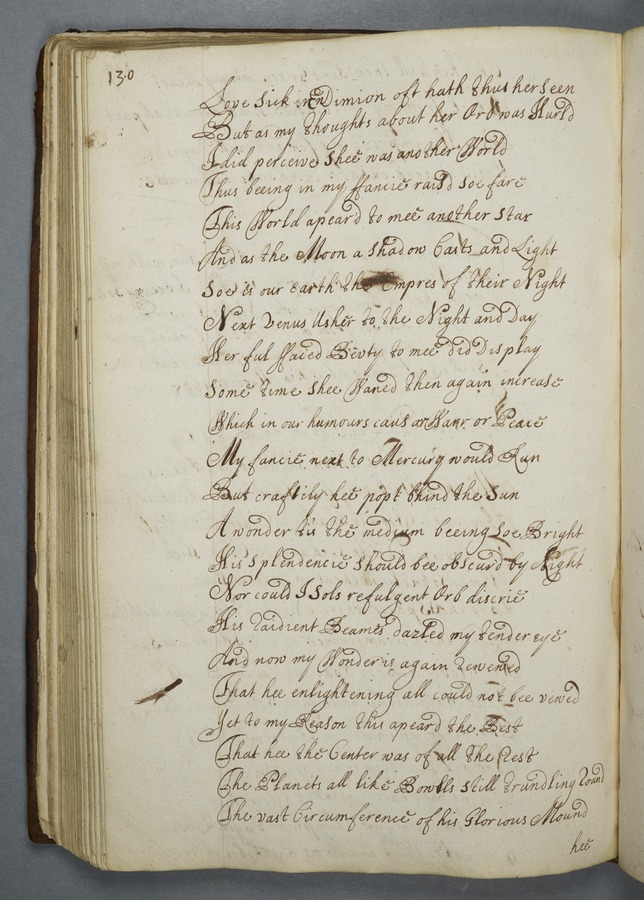 130
Love sick Endimion oft hath thus her seen
But as my thoughts about her Orb was Hurld
I did perceive Shee was another World
Thus beeing in my ffancie raisd soe fare
This World apeard to mee another Star
And as the Moon a shadow Casts and Light
Soe is our Earth the Empres of their Night
Next Venus Usher to the Night and Day
Her ful ffaced Bevty to mee did Display
Some time shee Waned then again increase
Which in our humours caus or Warr or Peace
My fancie next to Mercury would Run
But craftily hee popt bhind the Sun
A wonder tis the medium beeing soe Bright
His splendencie should bee obscurd by Night
Nor could I Sols refulgent Orb discrie
His raidient Beames dazled my tender eye
And now my Wonder is again renewed
That hee enlightening all could not bee vewed
Yet to my Reason this apeard the Best
That hee the Center was of all the rest
The Planets all like Bowlls still trundling round
The vast Circumference of his Glorious Mound
hee